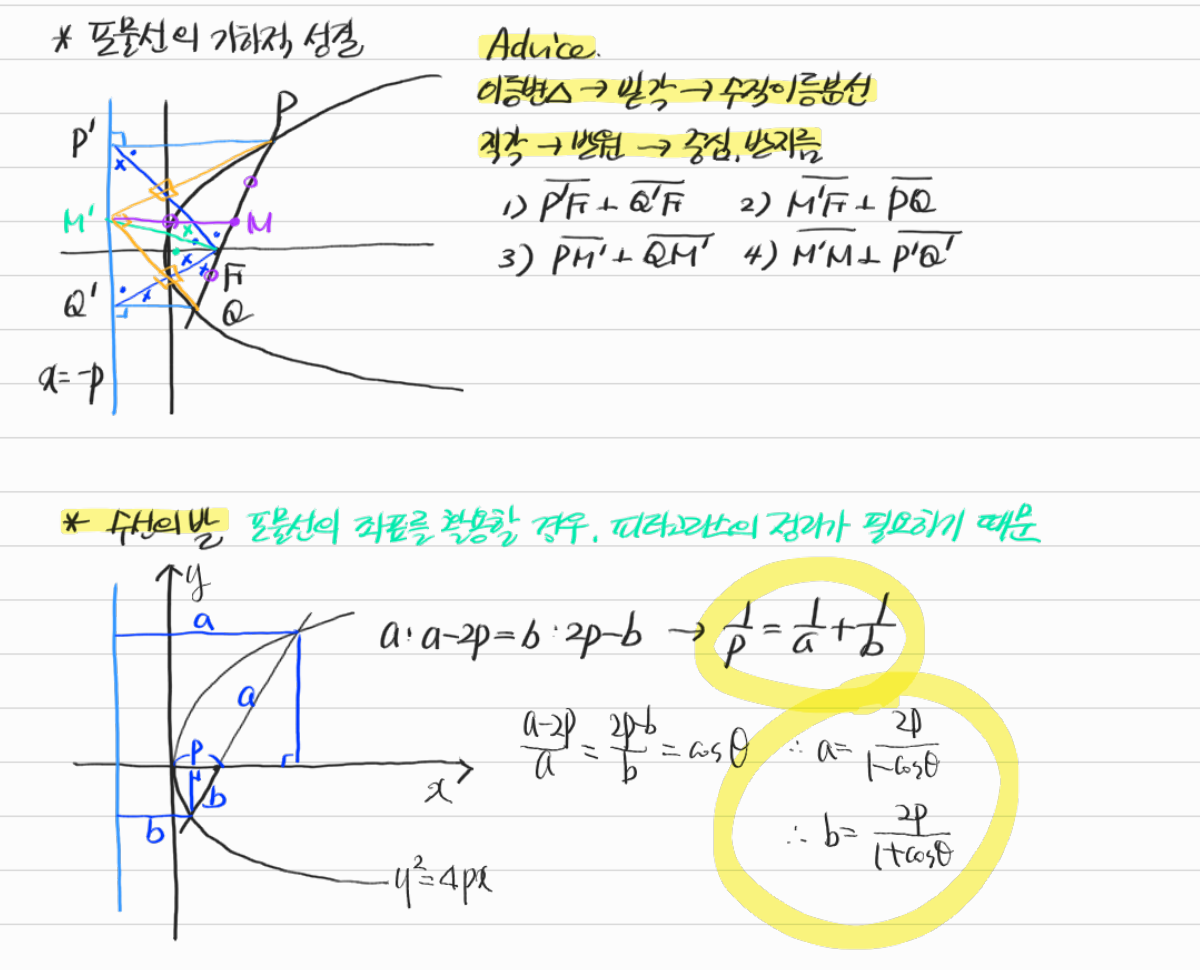 * 포물선의 기하적 성질
Advice.
이등변△ → 밑각 → 수직이등분선
직각 → 반원 → 중심, 반지름
1) P'F ⊥ Q'F 2) M'F ⊥ PQ
3) PM' ⊥ QM' 4) M'M ⊥ P'Q'
P
P'
M'
M
F
Q'
Q
x=-p
* 수선의 발 포물선의 좌표를 활용할 경우, 피타고라스의 정리가 필요하기 때문
y
a
a
p
b
b
x
y²=4px
a : a-2p = b : 2p-b → 1/p = 1/a + 1/b
(a-2p)/a = (2p-b)/b = cosθ ∴ a = 2p/(1-cosθ)
∴ b = 2p/(1+cosθ)